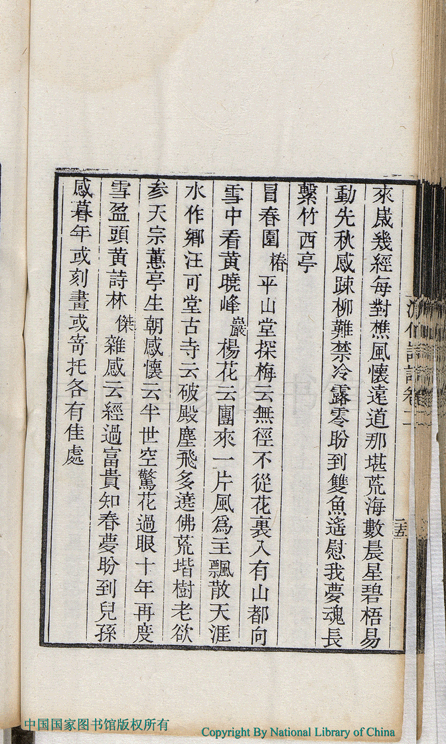 來歲幾經每對樵風懷遠道那堪荒海數晨星碧梧易
動先秋感疎柳難禁冷露零盼到雙魚遙慰我夢魂長
繫竹西亭
冒春圃椿平山堂探梅云無徑不從花裏入有山都向
雪中看黃曉峰巖楊花云團來一片風爲主飄散天涯
水作鄉汪可堂古寺云破殿塵飛多遶佛荒堦樹老欲
參天宗蕙亭生朝感懷云半世空驚花過眼十年再度
雪盈頭黃詩林傑雜感云經過富貴知春夢盼到兒孫
感暮年或刻畫或寄托各有佳處
詩話卷二
二五
中国国家图书馆版权所有
Copyright By National Library of China